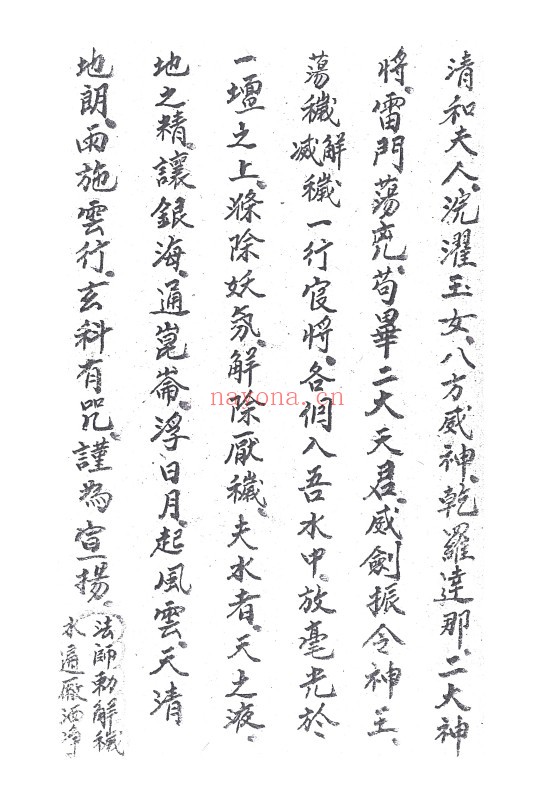 清和夫人、浣濯玉女、八方威神、乾羅達那、二大神
將、雷門蕩兇、苟畢二大天君、威劍振令神王、
蕩穢解穢一行官將、各侗入吾水中、放毫光於
滅
一壇之上、滌除妖氛、解除厭穢、夫水者、天之液、
地之精、讓銀海、通崑崙、浮日月、起風雲、天清
地朗、雨施雲行、玄科有咒、謹為宣揚、
法師勅解穢
水遍廠洒净
nayona.cn